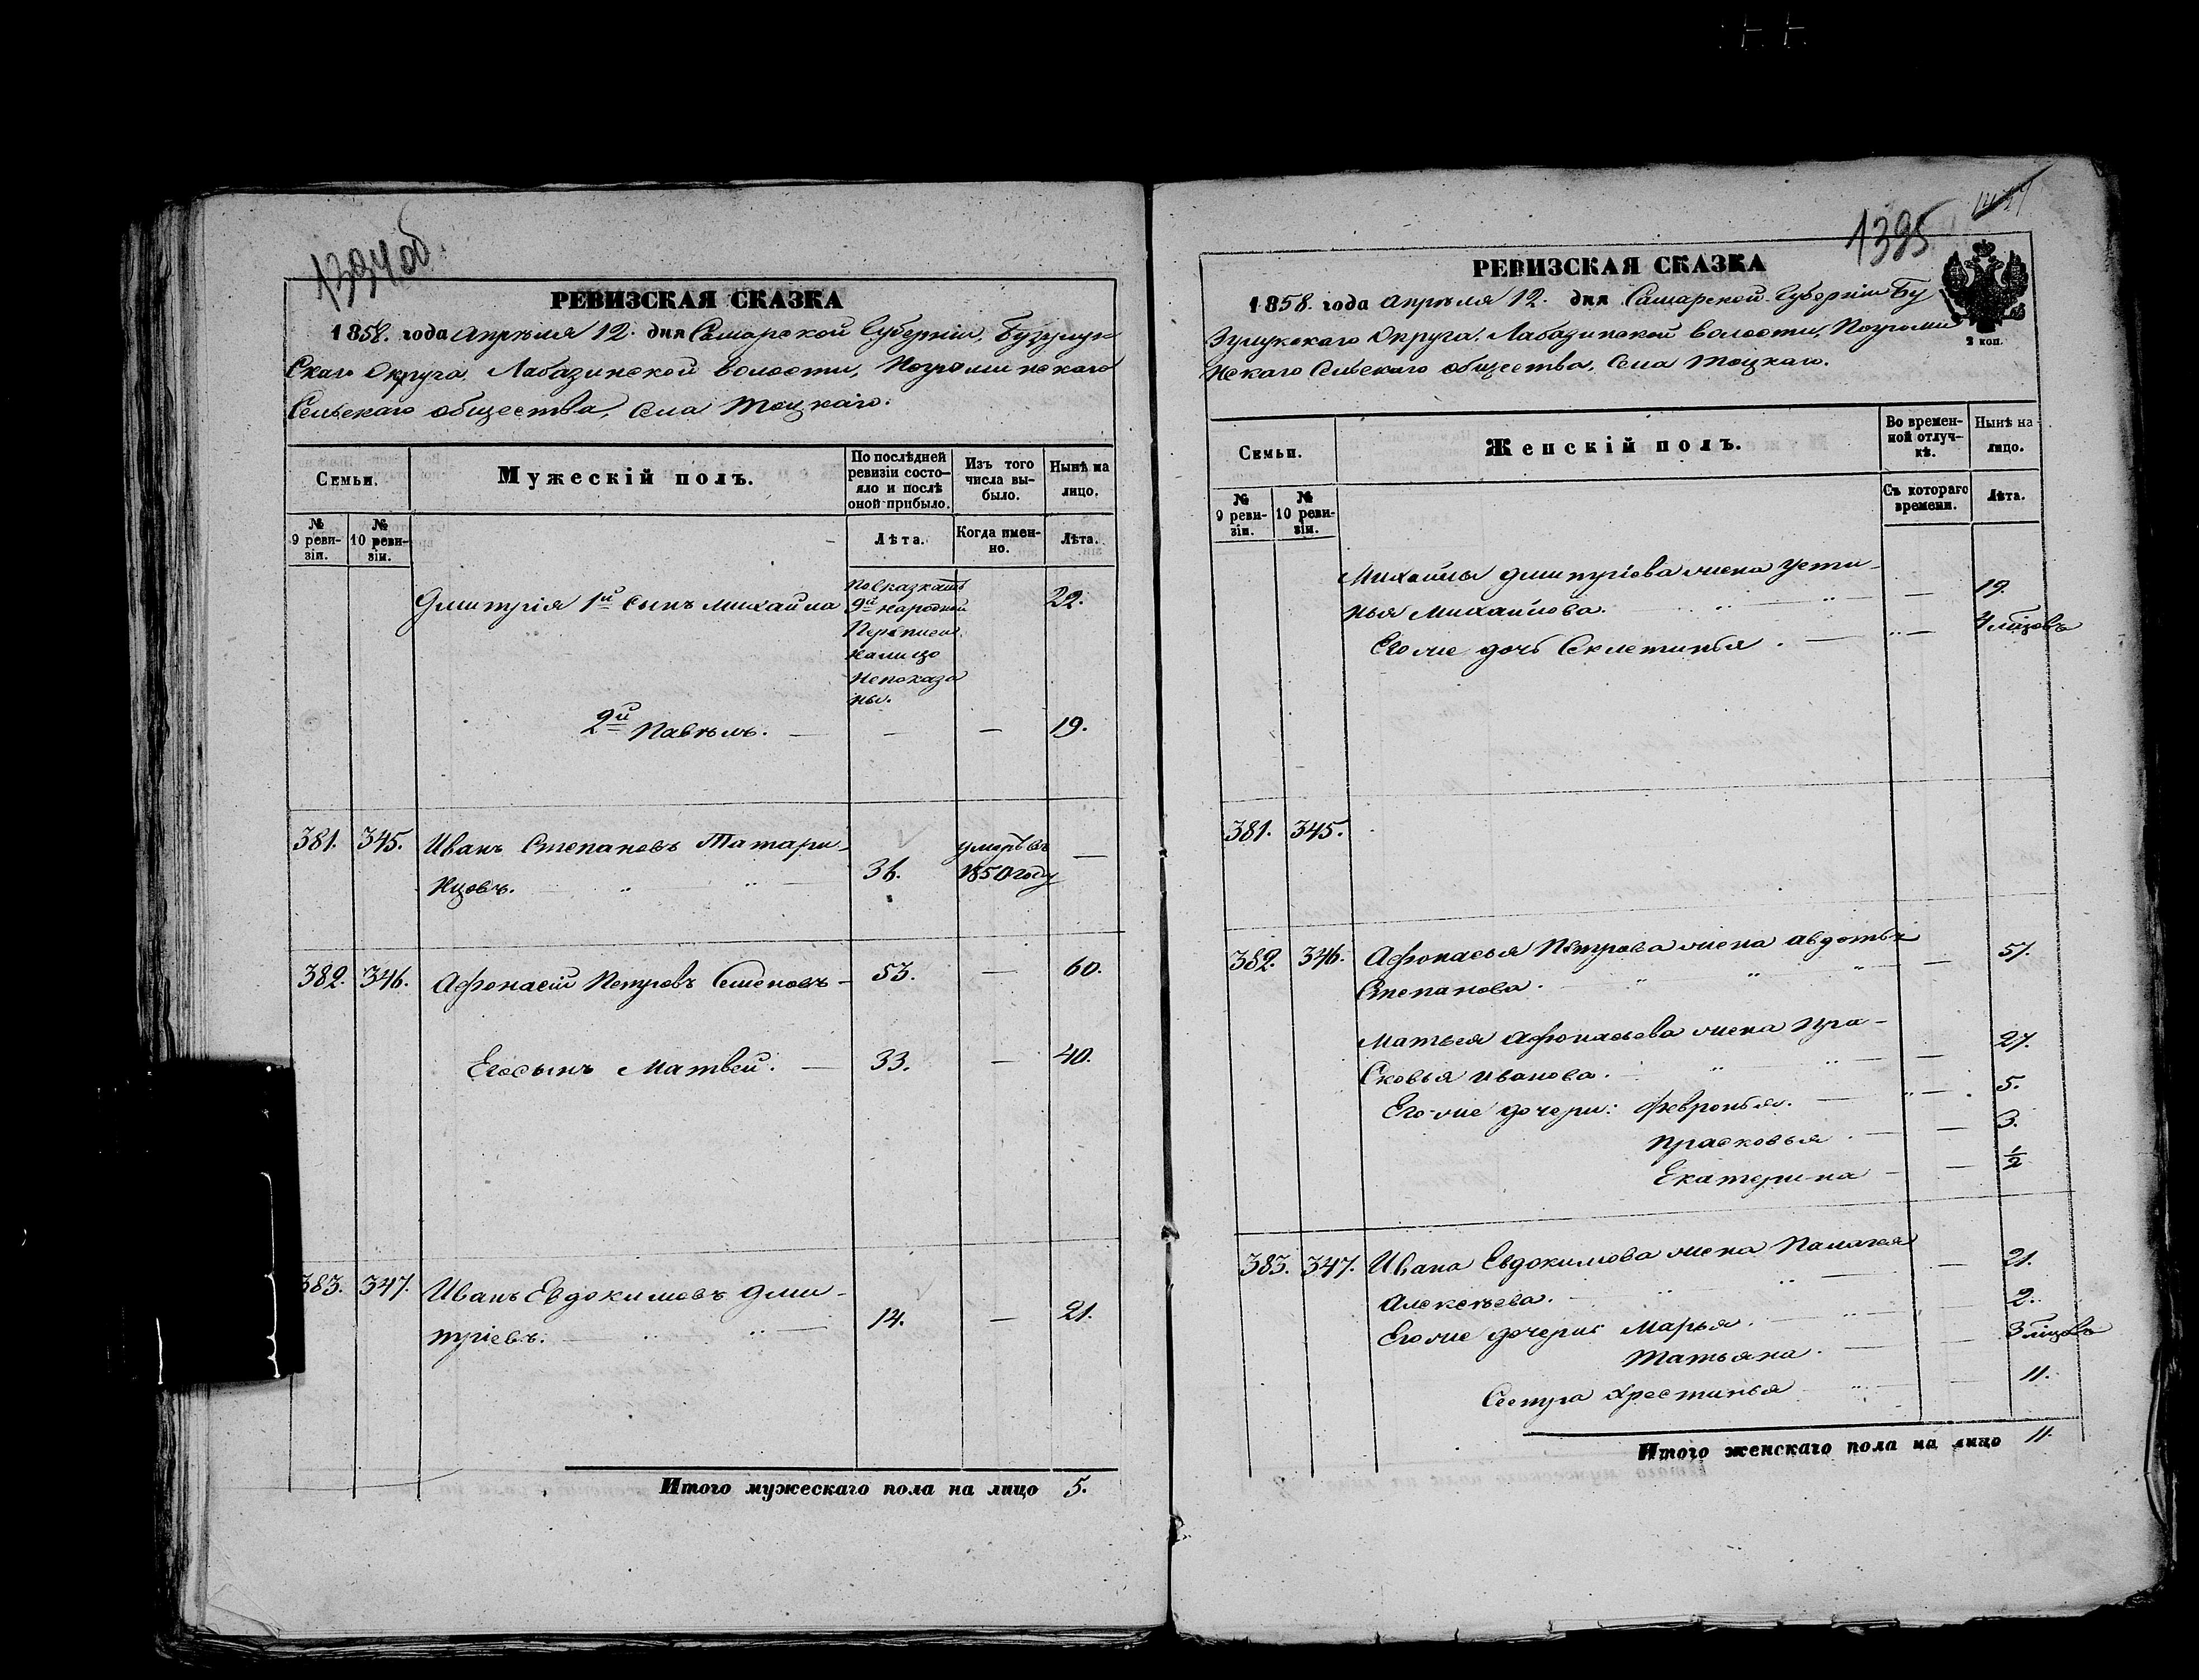 1394об
РЕВИЗСКАЯ СКАЗКА
1858. года Апрѣля 12. дня Самарской Губерніи, Бузулук
Скаго Округа, Лабазинской волости, Погроминскаго
Сельскаго общества, Села Тоцкаго.
Семьи.
Мужескій полъ.
По послѣдней
ревизіи состо-
яло и послѣ
оной прибыло.
Изъ того
числа вы-
было.
Нынѣ на
лицо.
№
9 реви-
зіи.
№
10 реви-
зіи.
Лѣта.
Когда имен-
но.
Лѣта.
Дмитрія 1й Сынъ Михайла
По сказкамъ
9й народной
Переписи
налицо
Непоказа
ны.
22.
2й Павѣлъ. — — — 19.
381. 345. Иванъ Степановъ Татари-
нцовъ. 36.
умеръ въ
1850 году —
382. 346. Афонасій Петровъ Семеновъ - 53. — 60.
Его сынъ Матвей. — 33. — 40.
383. 347. Иванъ Евдокимовъ Дми-
тріевъ. 14. — 21.
Итого мужескаго пола на лицо 5.
1395
РЕВИЗСКАЯ СКАЗКА
1858. года Апрѣля 12. дня Самарской Губерніи Бу
Зулукскаго Округа, Лабазинской волости, Погроми
Нскаго Сельскаго общества, Села Тоцкаго.
2 коп.
Семьи.
Женскій полъ.
Во времен-
ной отлуч-
кѣ.
Нынѣ на
лицо.
№
9 реви-
зіи.
№
10 реви-
зіи.
Съ котораго
времени.
Лѣта.
Михайлы Дмитріева жена Усти-
нья Михайлова. — 19.
Его же дочь Секлетинья. — 4 мѣсяцовъ
381. 345.
382. 346. Афонасья Петрова жена Авдотья
Степанова. — 57.
Матвея Афонасьева жена Пра-
Сковья Иванова. — 27.
Его-же дочери: Февронья. — 5.
Прасковья. — 3.
Екатерина — 1/2
383. 347. Ивана Евдокимова жена Палагея
Алексѣева. — 21.
Его же дочери: Марья. — 2.
Татьяна. — 3 мѣсяцовъ
Сестра Хрестинья — 11.
Итого женскаго пола на лицо 11.